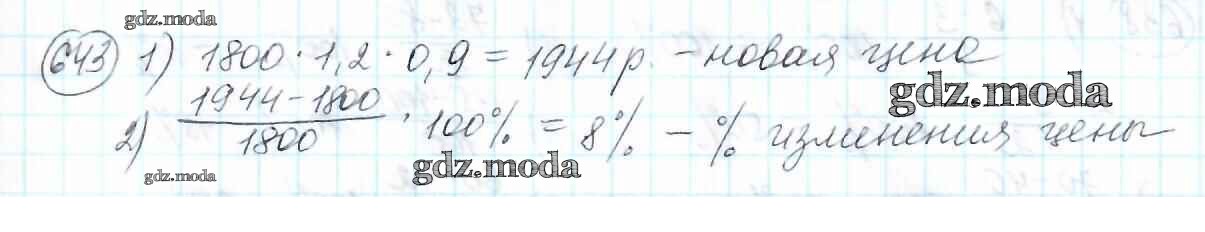 gdz.moda
643 1) 1800 · 1,2 · 0,9 = 1944 р. – новая цена
gdz.moda
2) (1944 – 1800)/1800 · 100% = 8% – % изменения цены
gdz.moda
gdz.moda